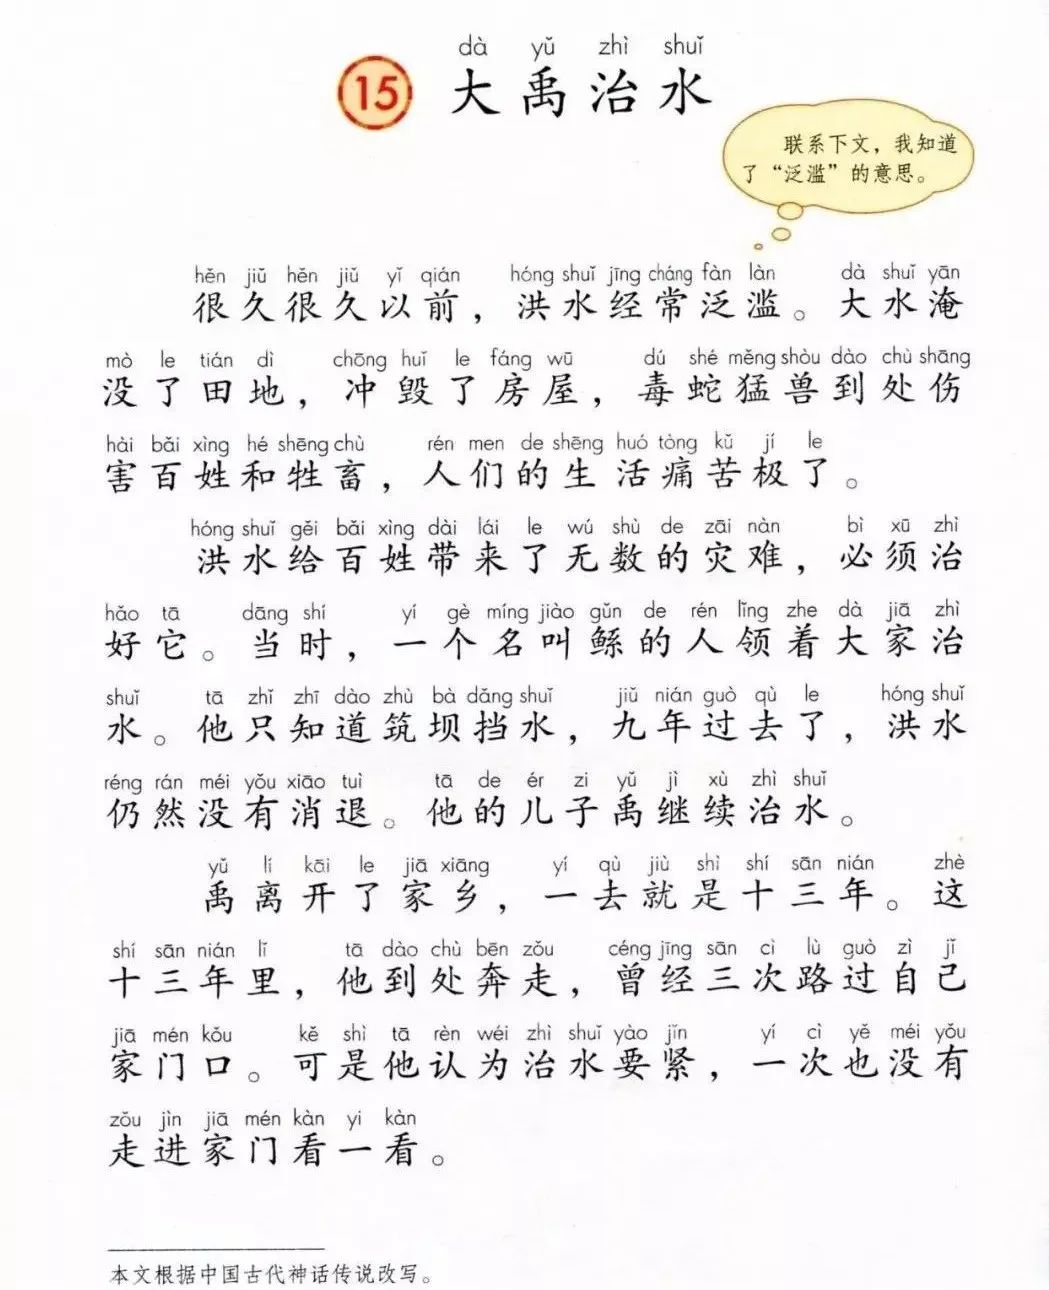 dà yǔ zhì shuǐ
15 大禹治水
联系下文，我知道
了“泛滥”的意思。
hěn jiǔ hěn jiǔ yǐ qián hóng shuǐ jīng cháng fàn làn dà shuǐ yān
很久很久以前，洪水经常泛滥。大水淹
mò le tián dì chōng huǐ le fáng wū dú shé měng shòu dào chù shāng
没了田地，冲毁了房屋，毒蛇猛兽到处伤
hài bǎi xìng hé shēng chù rén men de shēng huó tòng kǔ jí le
害百姓和牲畜，人们的生活痛苦极了。
hóng shuǐ gěi bǎi xìng dài lái le wú shù de zāi nàn bì xū zhì
洪水给百姓带来了无数的灾难，必须治
hǎo tā dāng shí yí gè míng jiào gǔn de rén lǐng zhe dà jiā zhì
好它。当时，一个名叫鲧的人领着大家治
shuǐ tā zhǐ zhī dào zhù bà dǎng shuǐ jiǔ nián guò qù le hóng shuǐ
水。他只知道筑坝挡水，九年过去了，洪水
réng rán méi yǒu xiāo tuì tā de ér zi yǔ jì xù zhì shuǐ
仍然没有消退。他的儿子禹继续治水。
yǔ lí kāi le jiā xiāng yí qù jiù shì shí sān nián zhè
禹离开了家乡，一去就是十三年。这
shí sān nián lǐ tā dào chù bēn zǒu céng jīng sān cì lù guò zì jǐ
十三年里，他到处奔走，曾经三次路过自己
jiā mén kǒu kě shì tā rèn wéi zhì shuǐ yào jǐn yí cì yě méi yǒu
家门口。可是他认为治水要紧，一次也没有
zǒu jìn jiā mén kàn yi kàn
走进家门看一看。
本文根据中国古代神话传说改写。